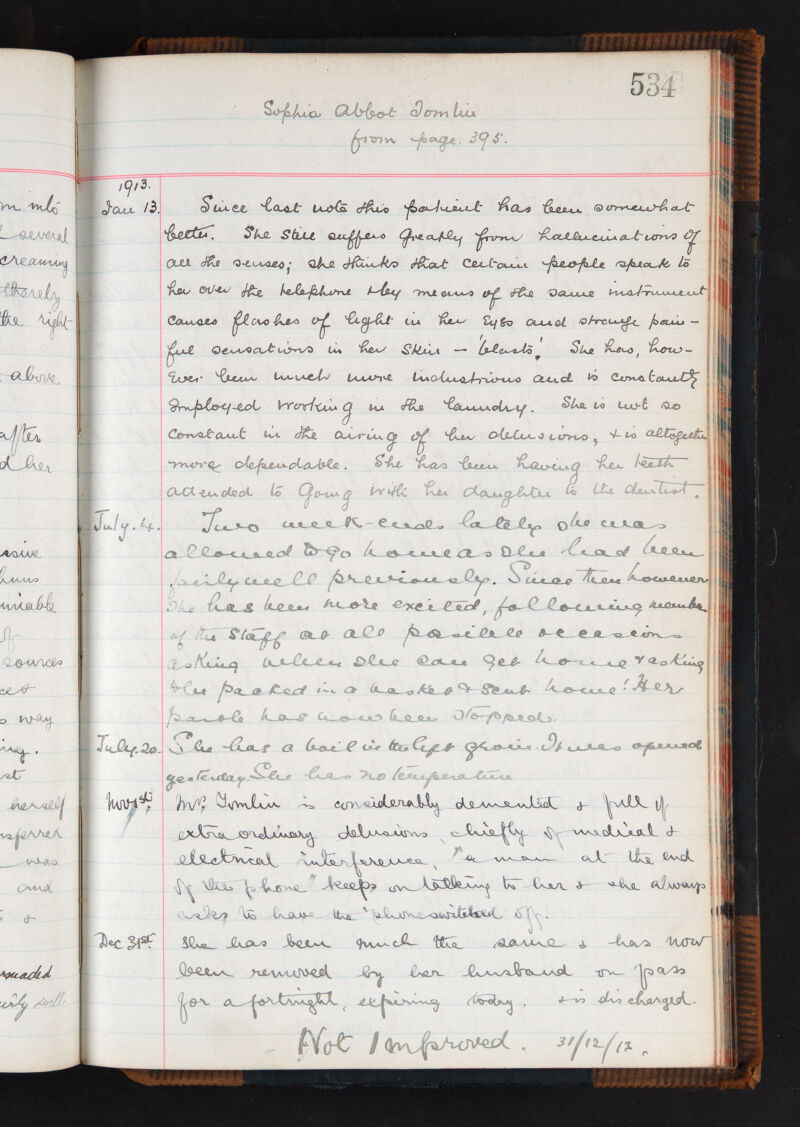 534
Sophia Abbot Tomlin
from page. 395.
1913.
Jan 13. Since last note this patient has been somewhat
better. She still suffers greatly from hallucinations of
all the senses; she thinks that certain people speak to
her over the telephone & by means of the same instrument
causes flashes of light in her eyes and strange pain-
ful sensations in her skin - 'blasts'. She has, how-
ever been much more industrious and is constantly
employed working in the laundry. She is not so
constant in the airing of her delusions, & is altogether
more dependable. She has been having her teeth
attended to going with her daughter to the dentist.
July. 4. Two week-ends lately she was
allowed to go home as she had been
fairly well previously. Since then however
she has been more excited, following member
of the Staff at all possible occasions
asking when she can get home & asking
to be packed in a basket & sent home! Her
parole has now been stopped.
July. 20. She has a boil in the left groin. It was opened
yesterday. She has no temperature
Nov 1st. Mrs. Tomlin is considerably demented & full of
extraordinary delusions, chiefly of medical &
electrical interference, "a man at the end
of the phone" keeps on talking to her & she always
asks to have the 'phone switched off.
Dec 31st. She has been much the same & has now
been removed by her husband on pass
for a fortnight, expiring today. & is discharged.
Not Improved. 31/12/13.
m into
several
creaming
thereby
the right
above
after
d her
sources
way
ing.
st
herself
nsferred
was
and
&